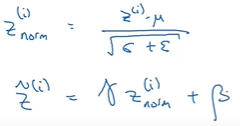 z_norm^(i) = (z^(i) - μ) / √(σ + ε)
z̃^(i) = γ z_norm^(i) + β